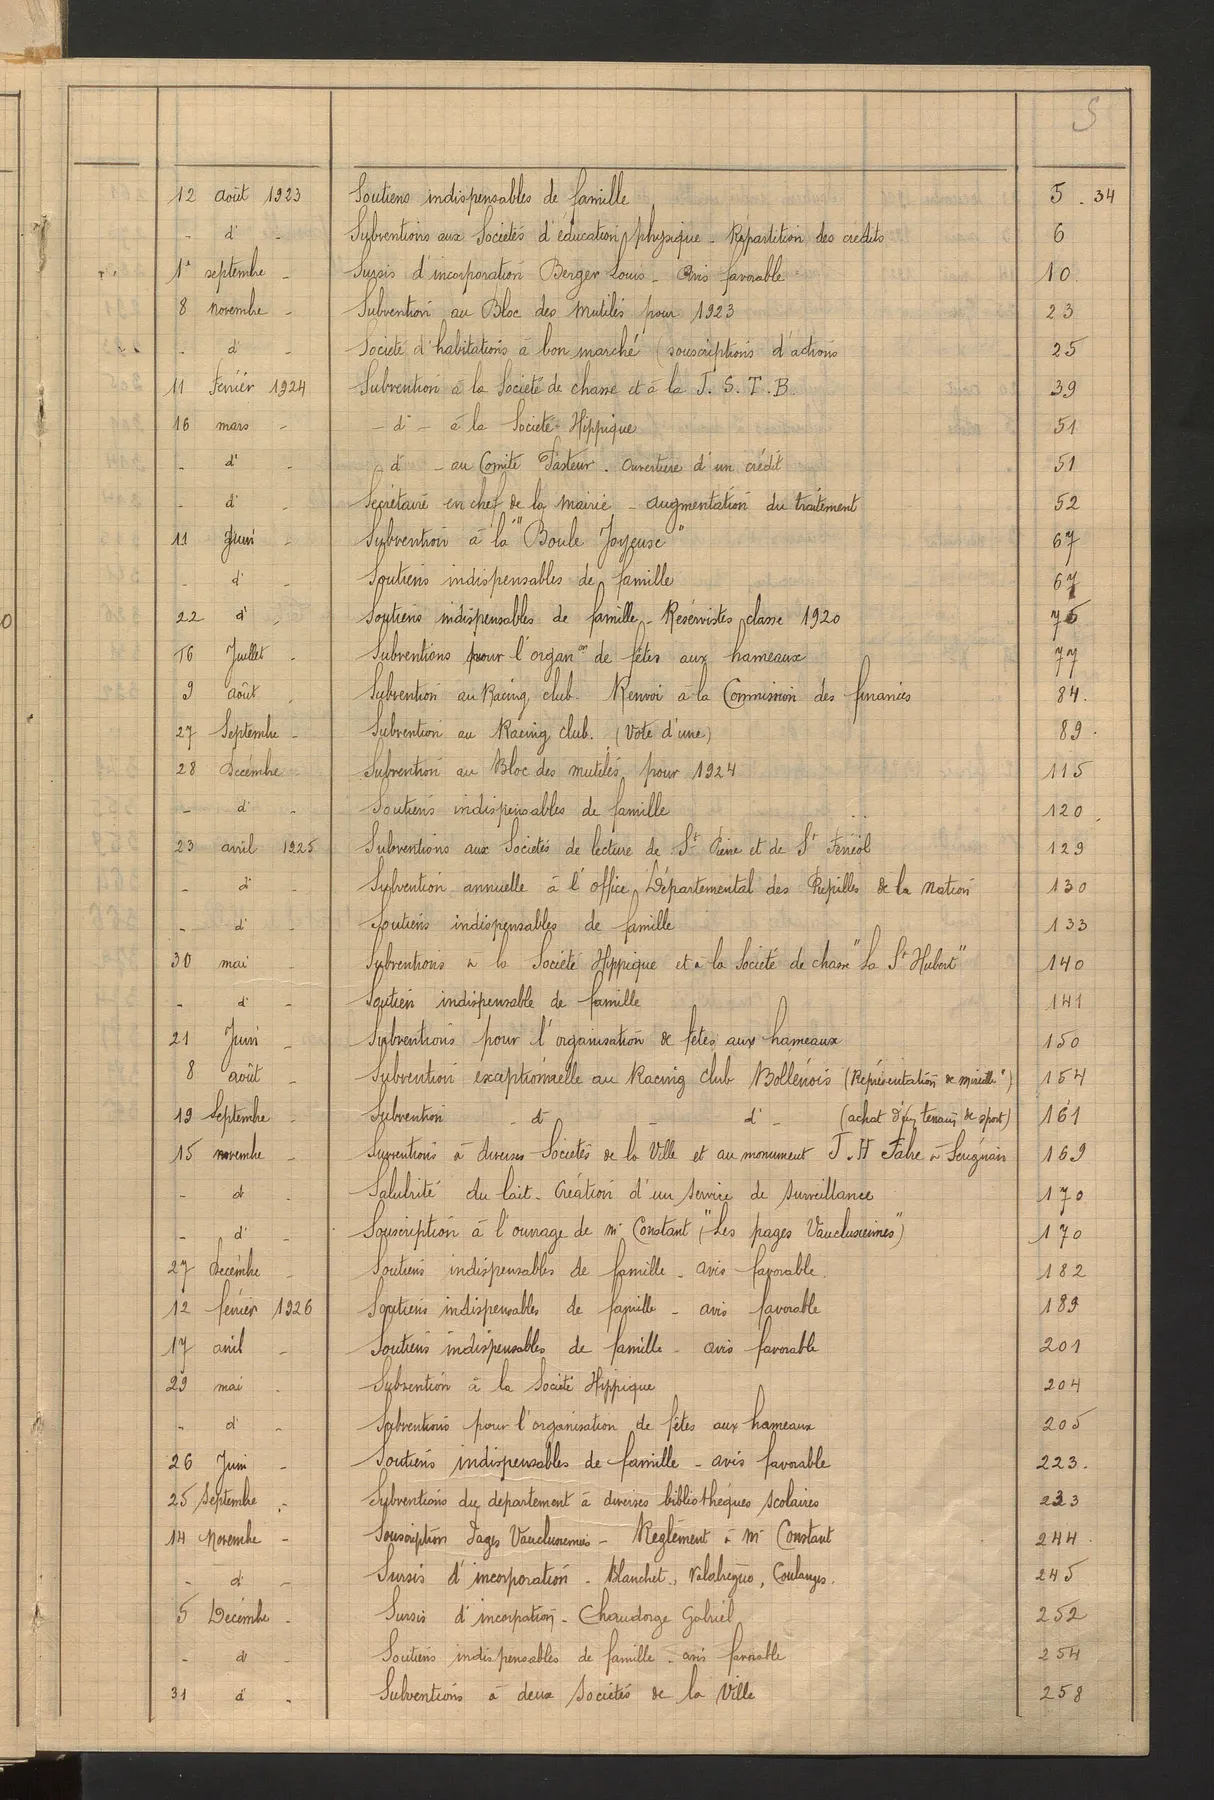 S
12 août 1923 Soutiens indispensables de famille 5 - 34
- d° - Subventions aux Sociétés d'éducation physique - Répartition des crédits 6
1er septembre - Sursis d'incorporation Berger Louis - Avis favorable 10
8 novembre - Subvention au Bloc des Mutilés pour 1923 23
- d° - Société d'habitations à bon marché (souscriptions d'actions 25
11 Février 1924 Subvention à la Société de chasse et à la J. S. T. B. 39
16 mars - - d° - à la Société Hippique 51
- d° - - d° - au Comité Pasteur. Ouverture d'un crédit 51
- d° - Secrétaire en chef de la Mairie - augmentation du traitement 52
11 Juin - Subvention à la "Boule Joyeuse" 67
- d° - Soutiens indispensables de famille 67
22 d° - Soutiens indispensables de famille - Réservistes classe 1920
16 Juillet - Subventions pour l'organon de fêtes aux hameaux 77
9 août - Subvention au Racing club. Renvoi à la Commission des finances 84.
27 Septembre - Subvention au Racing Club. (Vote d'une) 89.
28 Décembre - Subvention au Bloc des mutilés pour 1924 115
- d° - Soutiens indispensables de famille 120
23 avril 1925 Subventions aux Sociétés de lecture de St Pierre et de St Ferréol 129
- d° - Subvention annuelle à l'office Départemental des Pupilles de la Nation 130
- d° - Soutiens indispensables de famille 133
30 mai - Subventions à la Société Hippique et à la Société de chasse "La St Hubert" 140
- d° - Soutien indispensable de famille 141
21 Juin - Subventions pour l'organisation de fêtes aux hameaux 150
8 août - Subvention exceptionnelle au Racing Club Bollénois (Représentation de Mireille") 154
19 Septembre - Subvention - d° - d° - (achat d'un terrain de sport) 161
15 novembre - Subventions à diverses Sociétés de la Ville et au monument J. H Fabre à Sérignan 169
- d° - Salubrité du lait - Création d'un service de surveillance 170
- d° - Souscription à l'ouvrage de Mr Constant ("Les pages Vauclusiennes") 170
27 Décembre - Soutiens indispensables de famille - avis favorable 182
12 février 1926 Soutiens indispensables de famille - avis favorable 189
17 avril - Soutiens indispensables de famille - avis favorable 201
29 mai - Subvention à la Société Hippique 204
- d° - Subventions pour l'organisation de fêtes aux hameaux 205
26 Juin - Soutiens indispensables de famille - avis favorable 223.
25 Septembre - Subventions du département à diverses bibliothèques scolaires 233
14 Novembre - Souscription Pages Vauclusiennes - Règlement à Mr Constant 244
- d° - Sursis d'incorporation - Blanchet, Valabrègue, Coulanges. 245
5 Décembre - Sursis d'incorpation - Chaudorge Gabriel 252
- d° - Soutiens indispensables de famille - avis favorable 254
31 d° - Subventions à deux Sociétés de la Ville 258